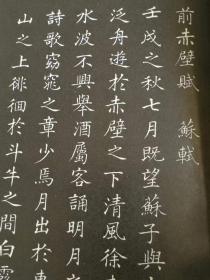 前赤壁賦　蘇軾
壬戌之秋七月既望蘇子與
泛舟遊於赤壁之下清風徐
水波不興舉酒屬客誦明月
詩歌窈窕之章少焉月出於東
山之上徘徊於斗牛之間白露